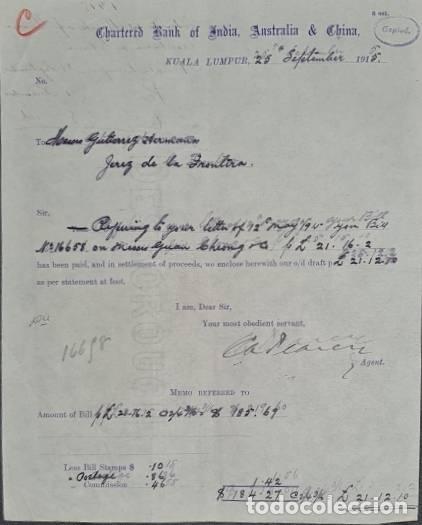 C
8 oct.
Copied.
Chartered Bank of India, Australia & China,
KUALA LUMPUR, 25 September 1915.
No.
To Messrs Gutierrez Hermanos
Jerez de la Frontera.
Sir,
Referring to your letter of 12 May /15 your Bill
No 16658 on Messrs Guan Cheong & Co p £ 21.16.2
has been paid, and in settlement of proceeds, we enclose herewith our o/d draft p £ 21.12.10
as per statement at foot.
I am, Dear Sir,
Your most obedient servant,
Agent.
16698
MEMO REFERRED TO
Amount of Bill p £ $ 185.69
Less Bill Stamps $ .10
" Postage
" Commission .46
1.42
$ 184.27 £ 21.12.10
todocoleccion.net